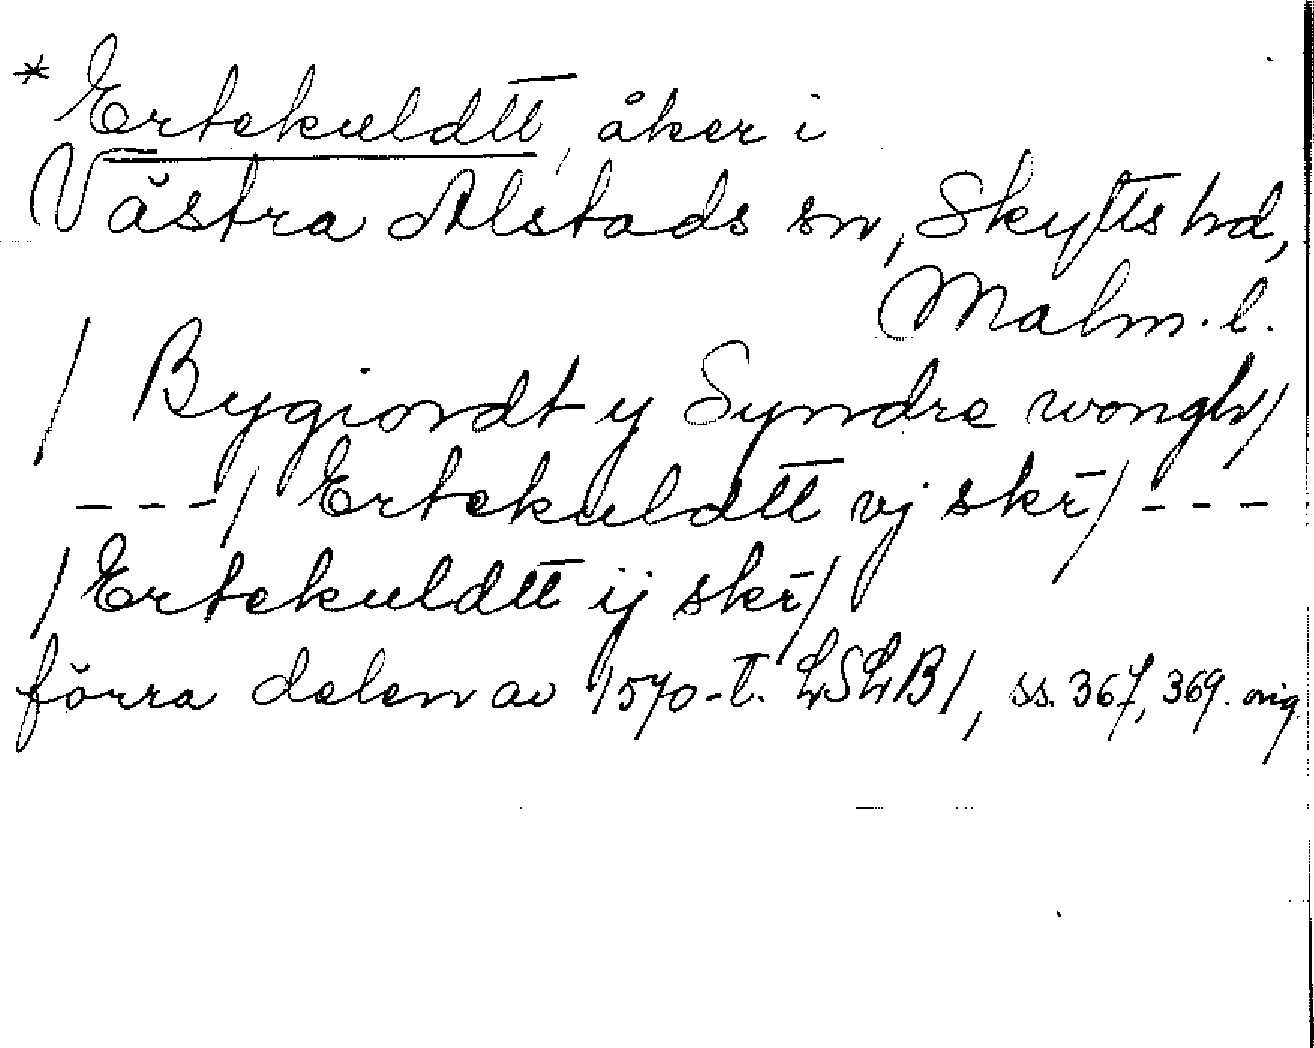 * Ertekuldtt, åker i
Västra Alstads sn, Skytts hd,
Malm. l.
/ Bygiordt y Syndre wongh/
---/ Ertekuldtt vj skr̄/ ---
/ Ertekuldtt ij skr̄/
förra delen av 1570-t. LSLB1, ss. 367, 369. orig